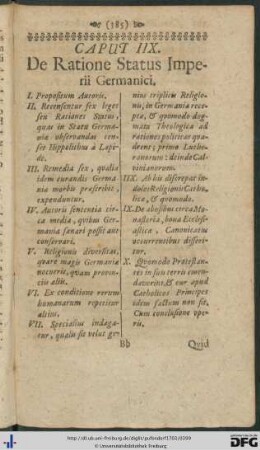 (385)
CAPUT IIX.
De Ratione Status Impe-
rii Germanici.
I. Propositum Autoris.
II. Recensentur sex leges
seu Rationes Status,
quas in Statu Germa-
niæ observandas cen-
set Hippolithus à Lapi-
de.
III. Remedia sex, quali-
idem curandis Germa-
niæ morbis præscribit,
expenduntur.
IV. Autoris sententia cir-
ca media, quibus Ger-
mania sanari possit aut
conservari.
V. Religionis diversitas,
quare magis Germaniæ
nocuerit, quam provin-
ciis aliis.
VI. Ex conditione rerum
humanarum repetitur
altius.
VII. Specialius indaga-
tur, qualis sit velut ge-
nius triplicis Religio-
nis, in Germania rece-
pta, & quomodo dog-
mata Theologica ad
rationes politicas qua-
drent; prima Luthe-
ranorum: deinde Cal-
vinianorum.
IIX. Ab his discrepat in-
doles Religionis Catho-
licæ, & quomodo.
IX. De abusibus circa Mo-
nasteria, bona Ecclesi-
astica, Canonicatus
occurrentibus disseri-
tur.
X. Quomodo Protestan-
tes in suis terris emen-
daverint, & cur apud
Catholicos Principes
idem factum non sit.
Cum conclusione ope-
ris.
Bb Quid
http://dl.ub.uni-freiburg.de/diglit/pufendorf1703/0399
© Universitätsbibliothek Freiburg
gefördert durch die
DFG